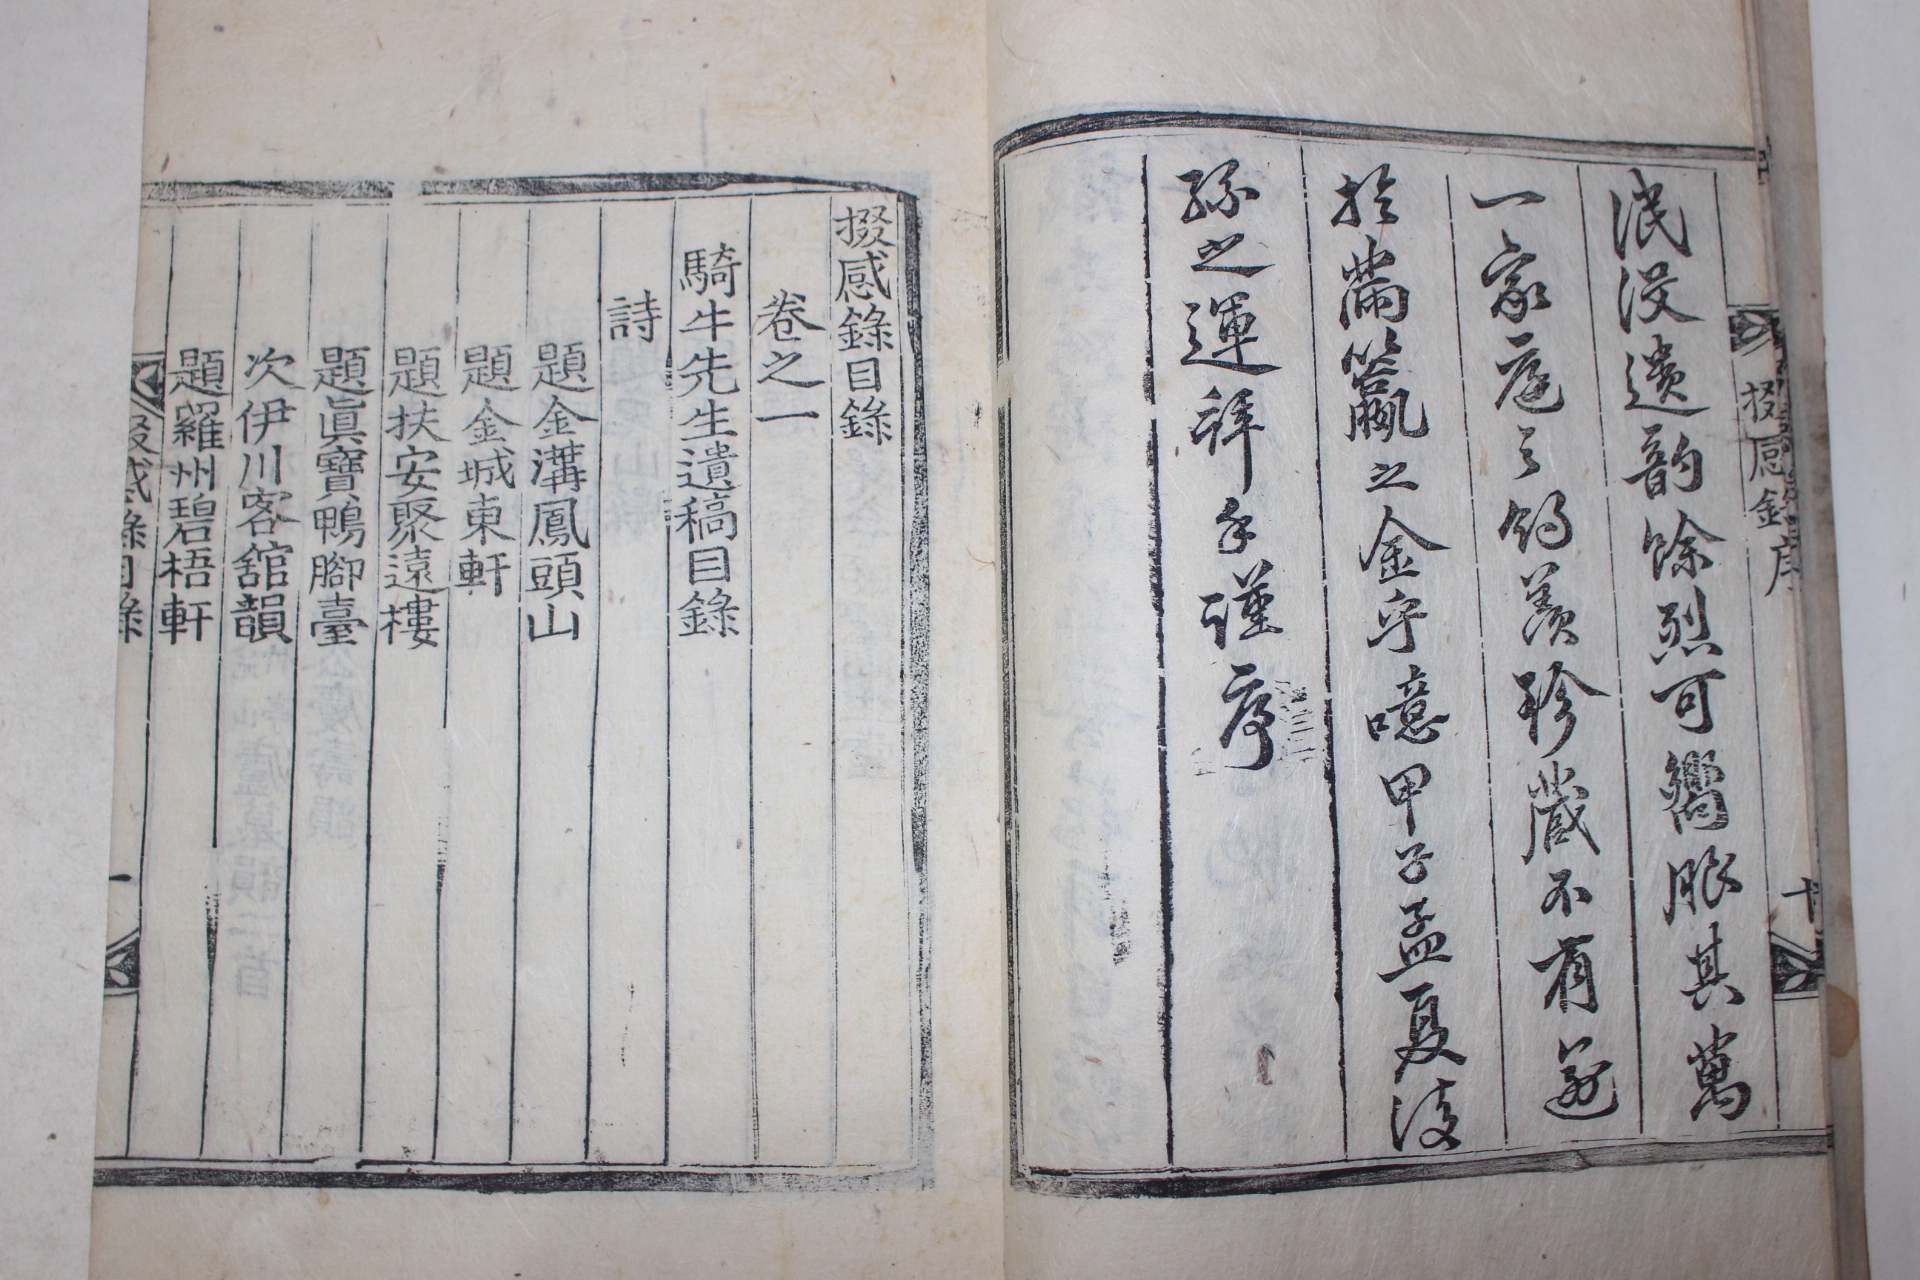 掇感錄序
十
泯沒遺韵餘烈可嚮眹其萬
一家庭之所羡珍藏不有逾
於滿籯之金乎噫甲子孟夏後
孫之運拜手謹序
掇感錄目錄
卷之一
騎牛先生遺稿目錄
詩
題金溝鳳頭山
題金城東軒
題扶安聚遠樓
題眞寶鴨脚臺
次伊川客舘韻
題羅州碧梧軒
掇感錄目錄
一